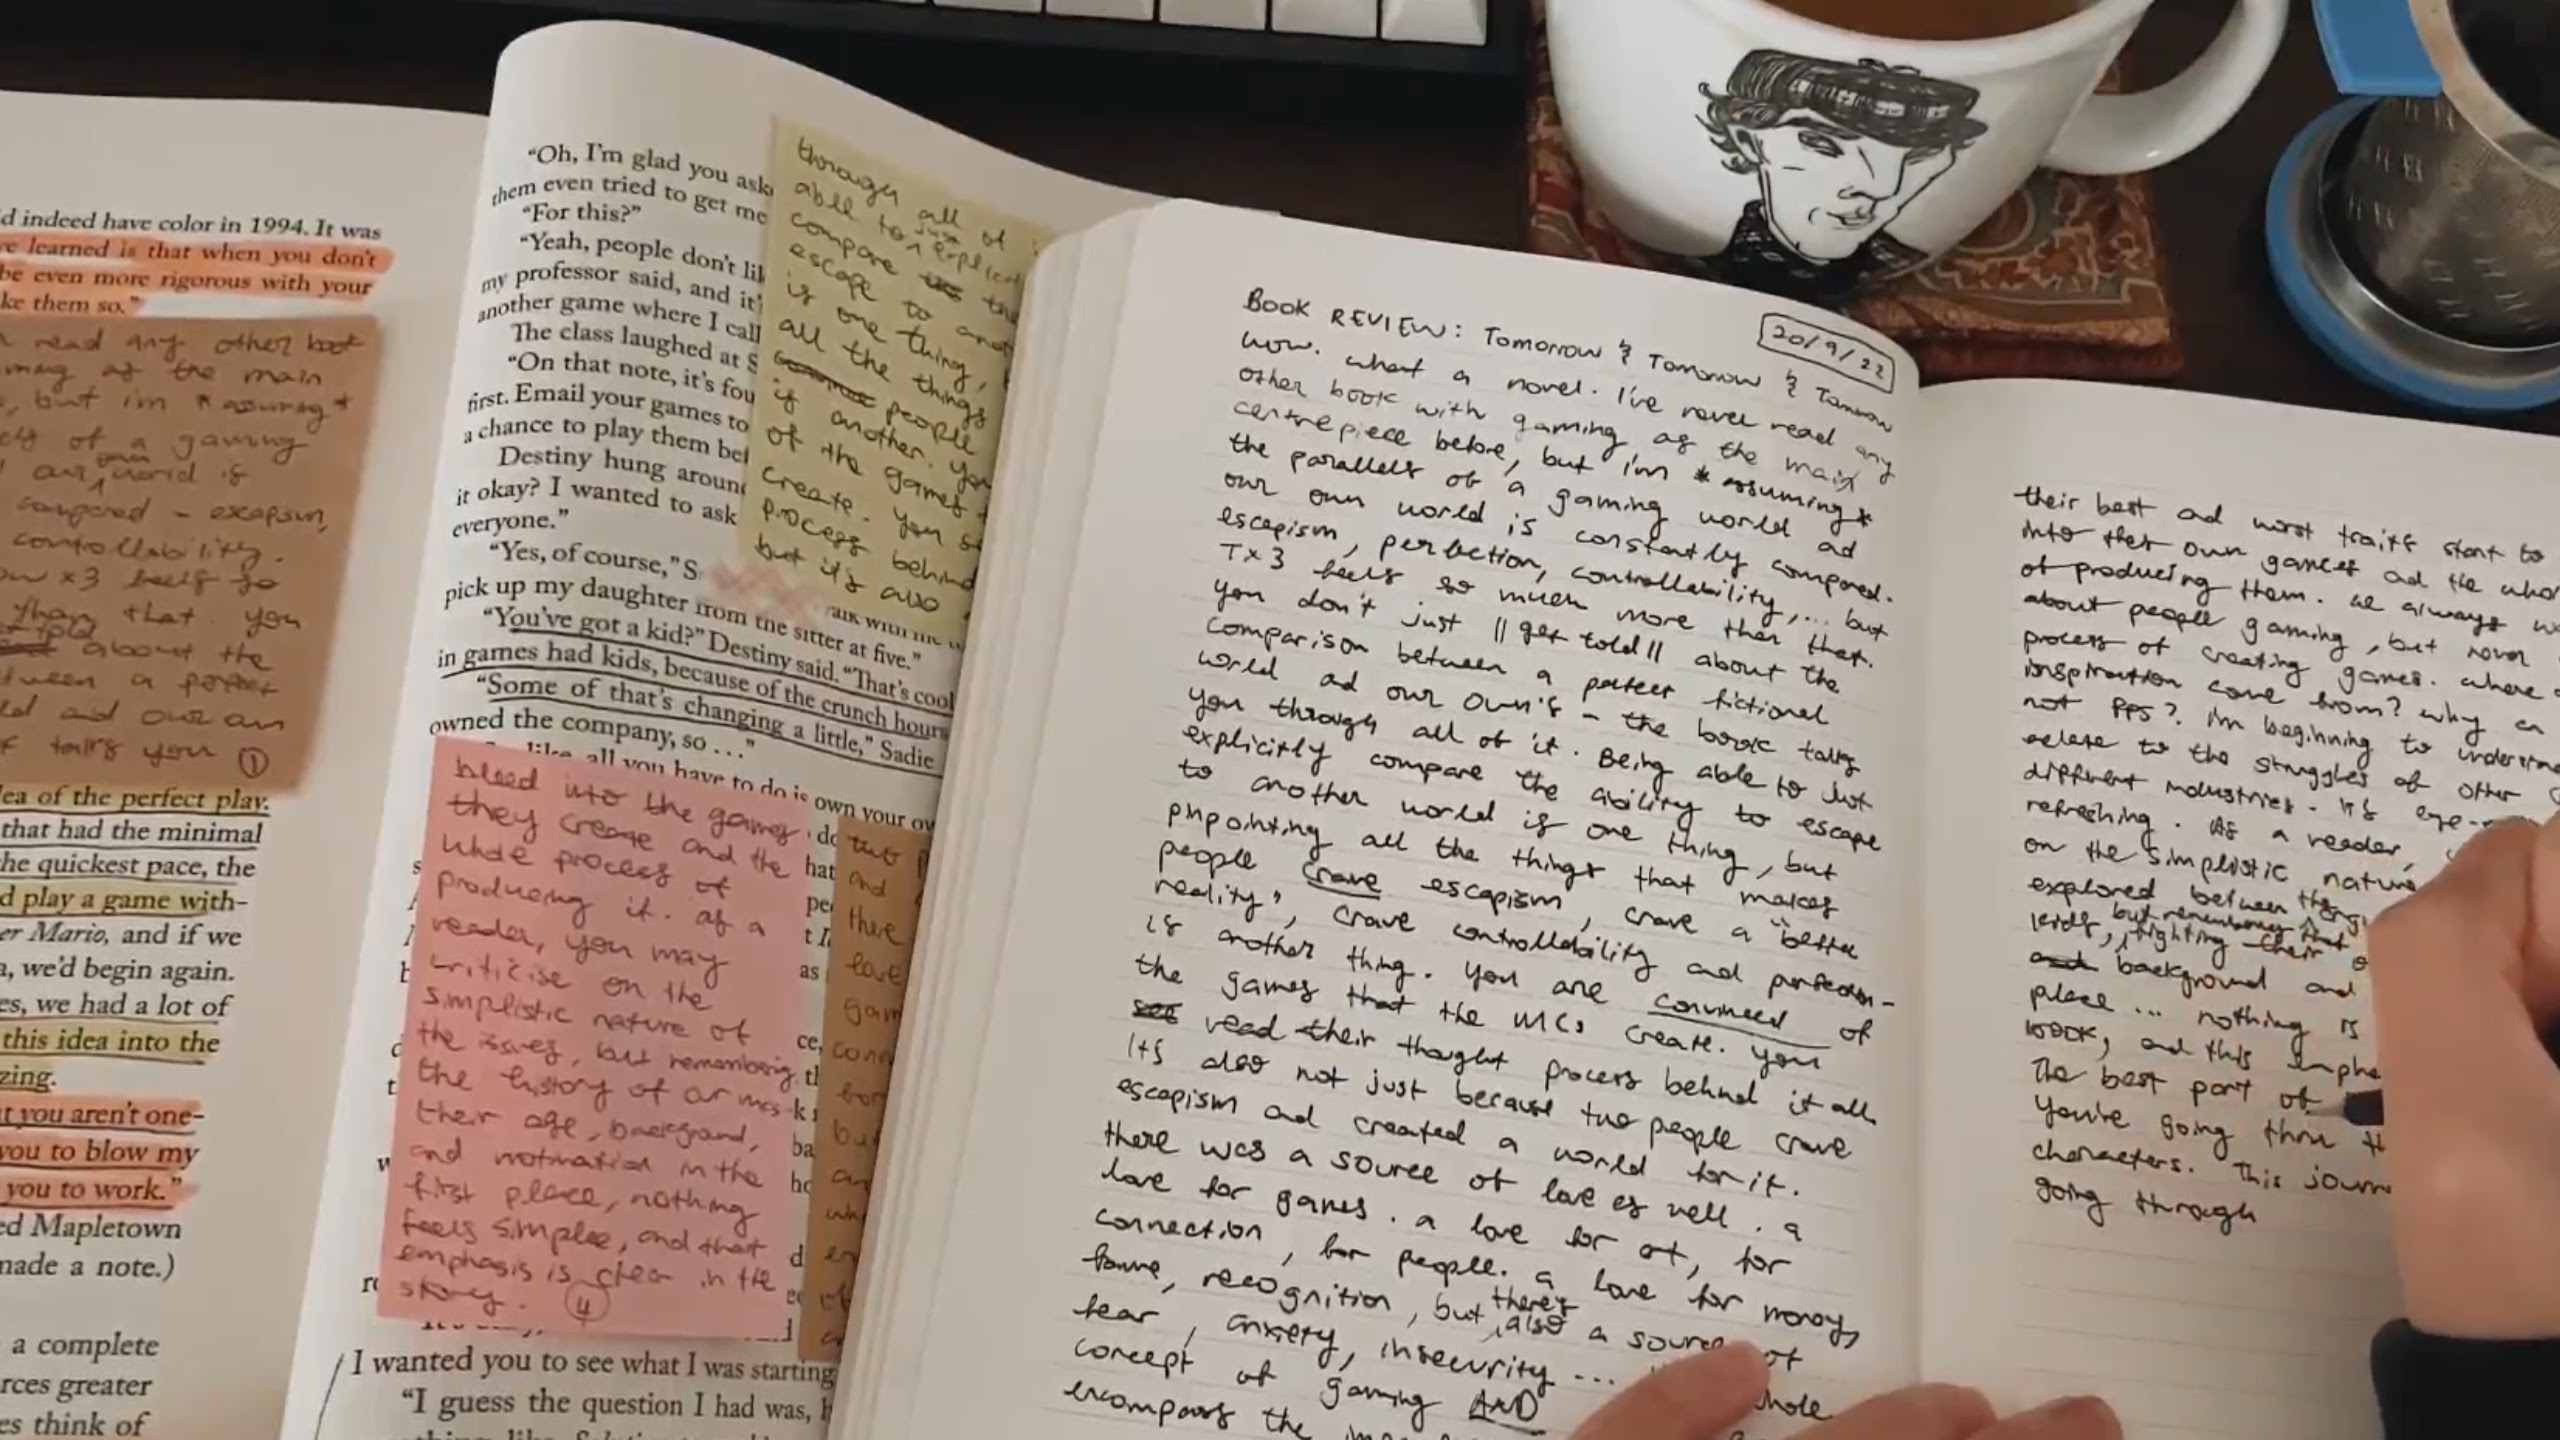 d indeed have color in 1994. It was
ve learned is that when you don't
be even more rigorous with your
ke them so."
read any other book
ming as the main
, but i'm * assuming *
of a gaming
our own world is
compared - escapism,
controllability.
ow x3 feels so
than that. you
told about the
tween a perfect
ld and our own
talks you ①
lea of the perfect play.
that had the minimal
he quickest pace, the
d play a game with-
er Mario, and if we
a, we'd begin again.
es, we had a lot of
this idea into the
zing.
t you aren't one-
you to blow my
you to work."
ed Mapletown
made a note.)
a complete
rces greater
es think of
"Oh, I'm glad you ask
them even tried to get me
"For this?"
"Yeah, people don't lik
my professor said, and it'
another game where I call
The class laughed at S
"On that note, it's fou
first. Email your games to
a chance to play them bef
Destiny hung around
it okay? I wanted to ask
everyone."
"Yes, of course," S
pick up my daughter from the sitter at five."
"You've got a kid?" Destiny said. "That's cool
in games had kids, because of the crunch hours
"Some of that's changing a little," Sadie
owned the company, so ..."
all you have to do is own your ow
through all of i
able to just explicit
compare the
escape to anot
is one thing,
all the things
people
if another. you
of the games
create. you se
process behind
but it's also
bleed into the games
they create and the
whole process of
producing it. as a
reader, you may
criticise on the
simplistic nature of
the issues, but remembering
the history of our mcs -
their age, background,
and motivation in the
first place, nothing
feels simple, and that
emphasis is clear in the
story. ④
two p
and
there
love
gam
conn
I wanted you to see what I was starting
"I guess the question I had was, h
BOOK REVIEW: Tomorrow & Tomorrow & Tomorrow
20/9/22
wow. what a novel. I've never read any
other book with gaming as the main
centrepiece before, but i'm * assuming *
the parallels of a gaming world ad
our own world is constantly compared.
escapism, perfection, controllability,... but
Tx3 feels so much more than that.
you don't just || get told || about the
comparison between a perfect fictional
world ad our own's - the book talks
you through all of it. Being able to just
explicitly compare the ability to escape
to another world is one thing, but
pnpointing all the things that makes
people crave escapism, crave a "better
reality", crave controllability and perfection -
is another thing. You are convinced of
the games that the MCs create. you
see read their thought process behind it all.
It's also not just because two people crave
escapism ad created a world for it.
there was a source of love as well. a
love for games. a love for art, for
connection, for people. a love for money,
fame, recognition, but there's also a source of
fear, anxiety, insecurity ... whole
concept of gaming AND
encompass the
their best ad worst traits start to
into their own games ad the whol
of producing them. we always
about people gaming, but never
process of creating games. where
inspiration come from? why an
not fps?. i'm beginning to understand
relate to the struggles of other
different industries. it's eye-
refreshing. As a reader,
on the simplistic nature
explored between
kids, but remembering that fighting their
and background and
place ... nothing is
book, and this empha
The best part of
you're going thru th
characters. This journ
going through